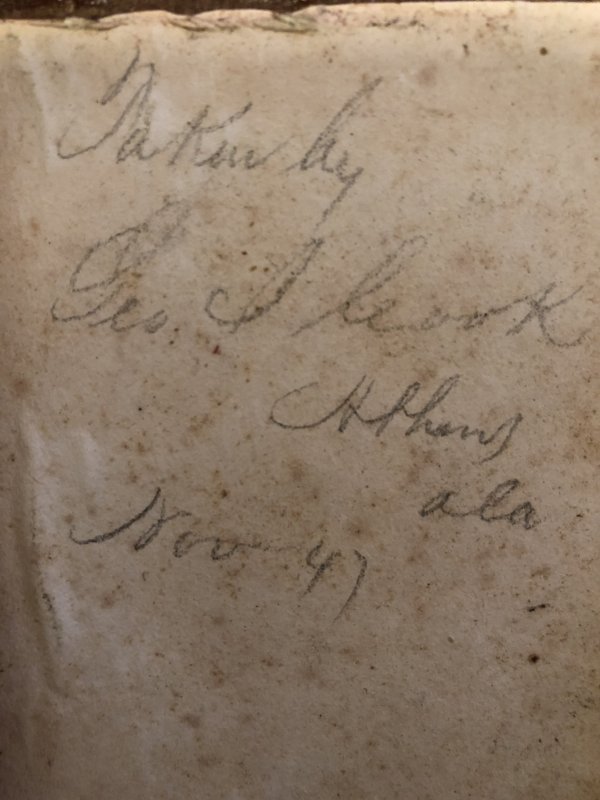 Taken by
Geo. S Cook
Athens
ala
Nov 47